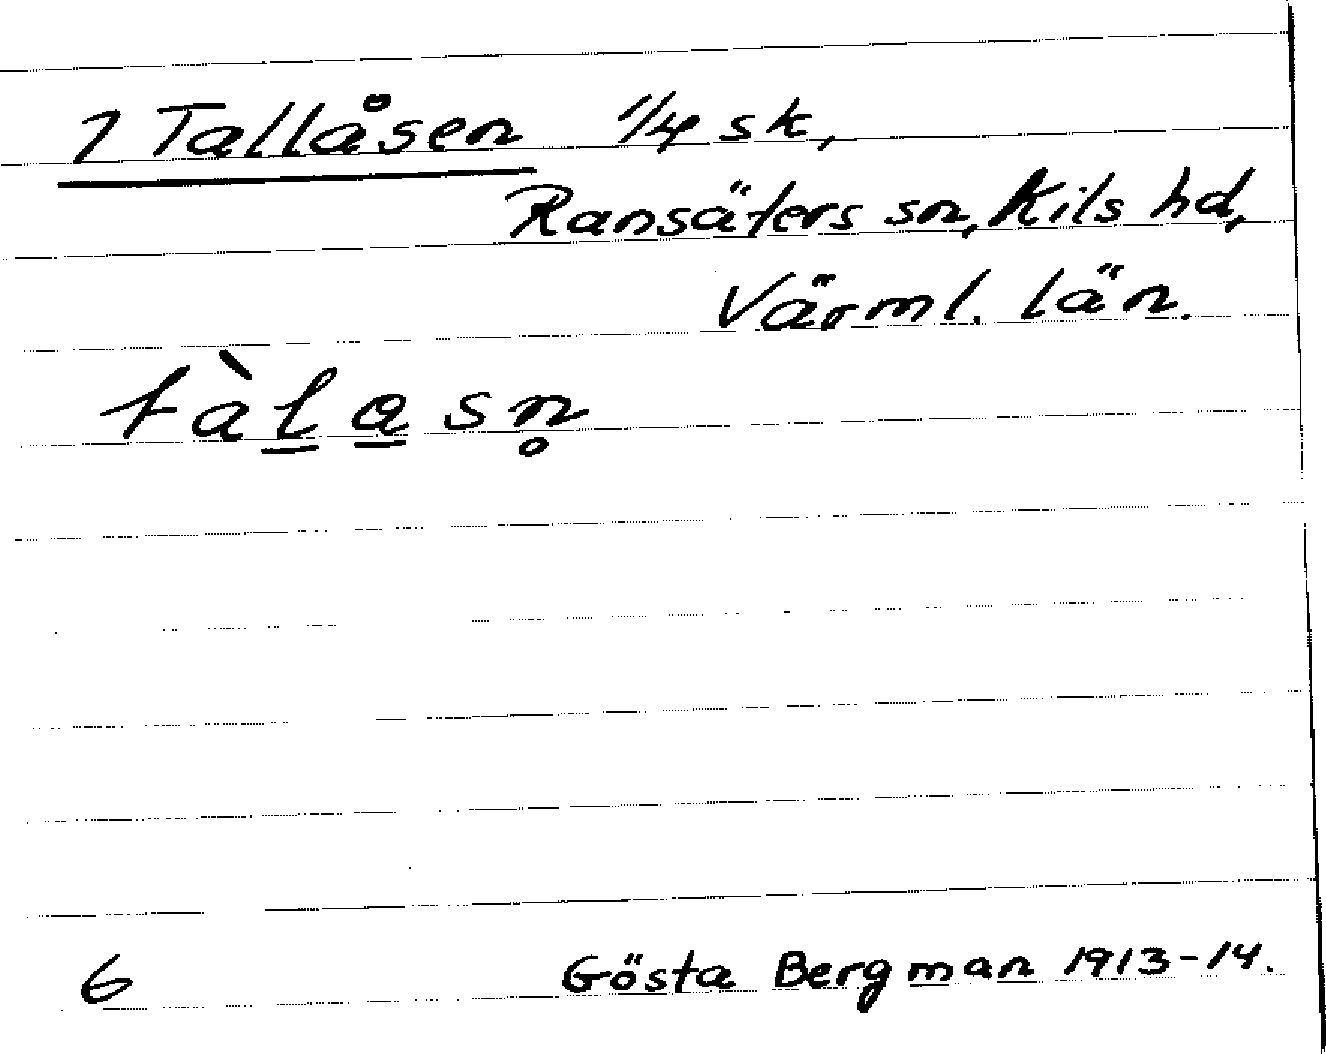 1 Tallåsen 1/4 sk,
Ransäters sn, Kils hd,
Värml. län.
tàl̲a̲sn̥
6 Gösta Bergman 1913-14.